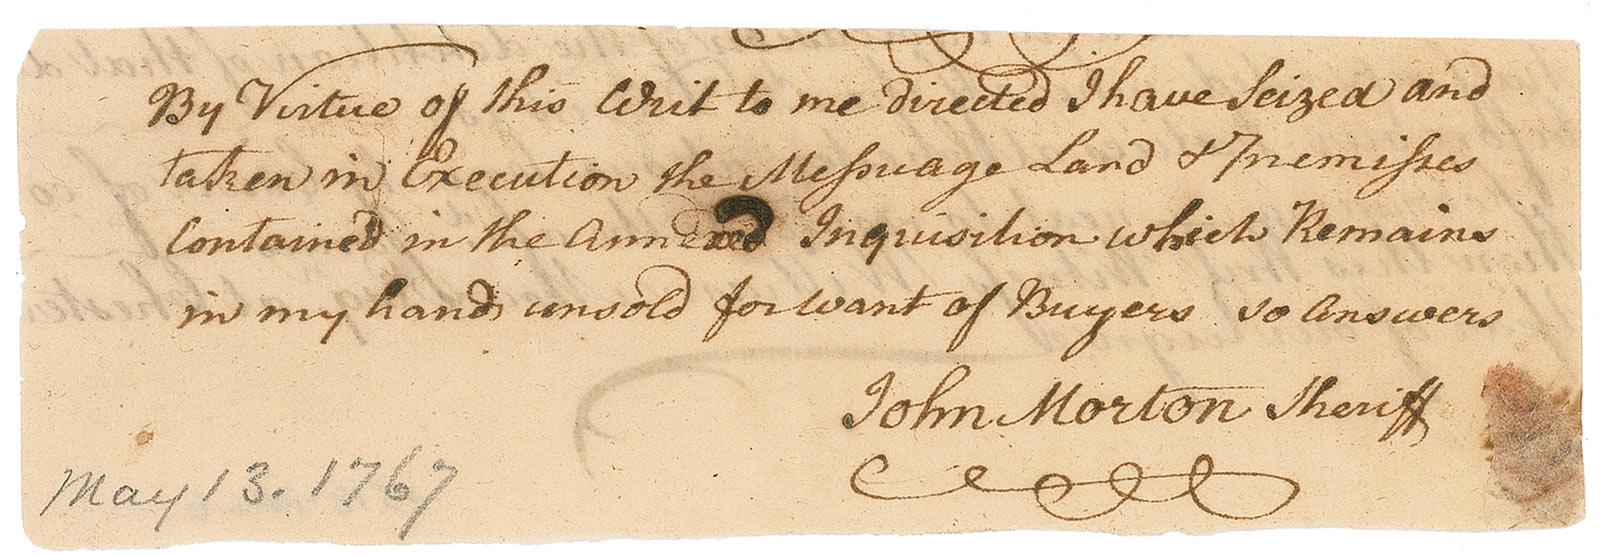 By Virtue of this Writ to me directed I have Seized and
taken in Execution the Messuage Land & Premisses
Contained in the Annexed Inquisition which Remains
in my hands unsold for want of Buyers so Answers
John Morton Sheriff
May 13. 1767